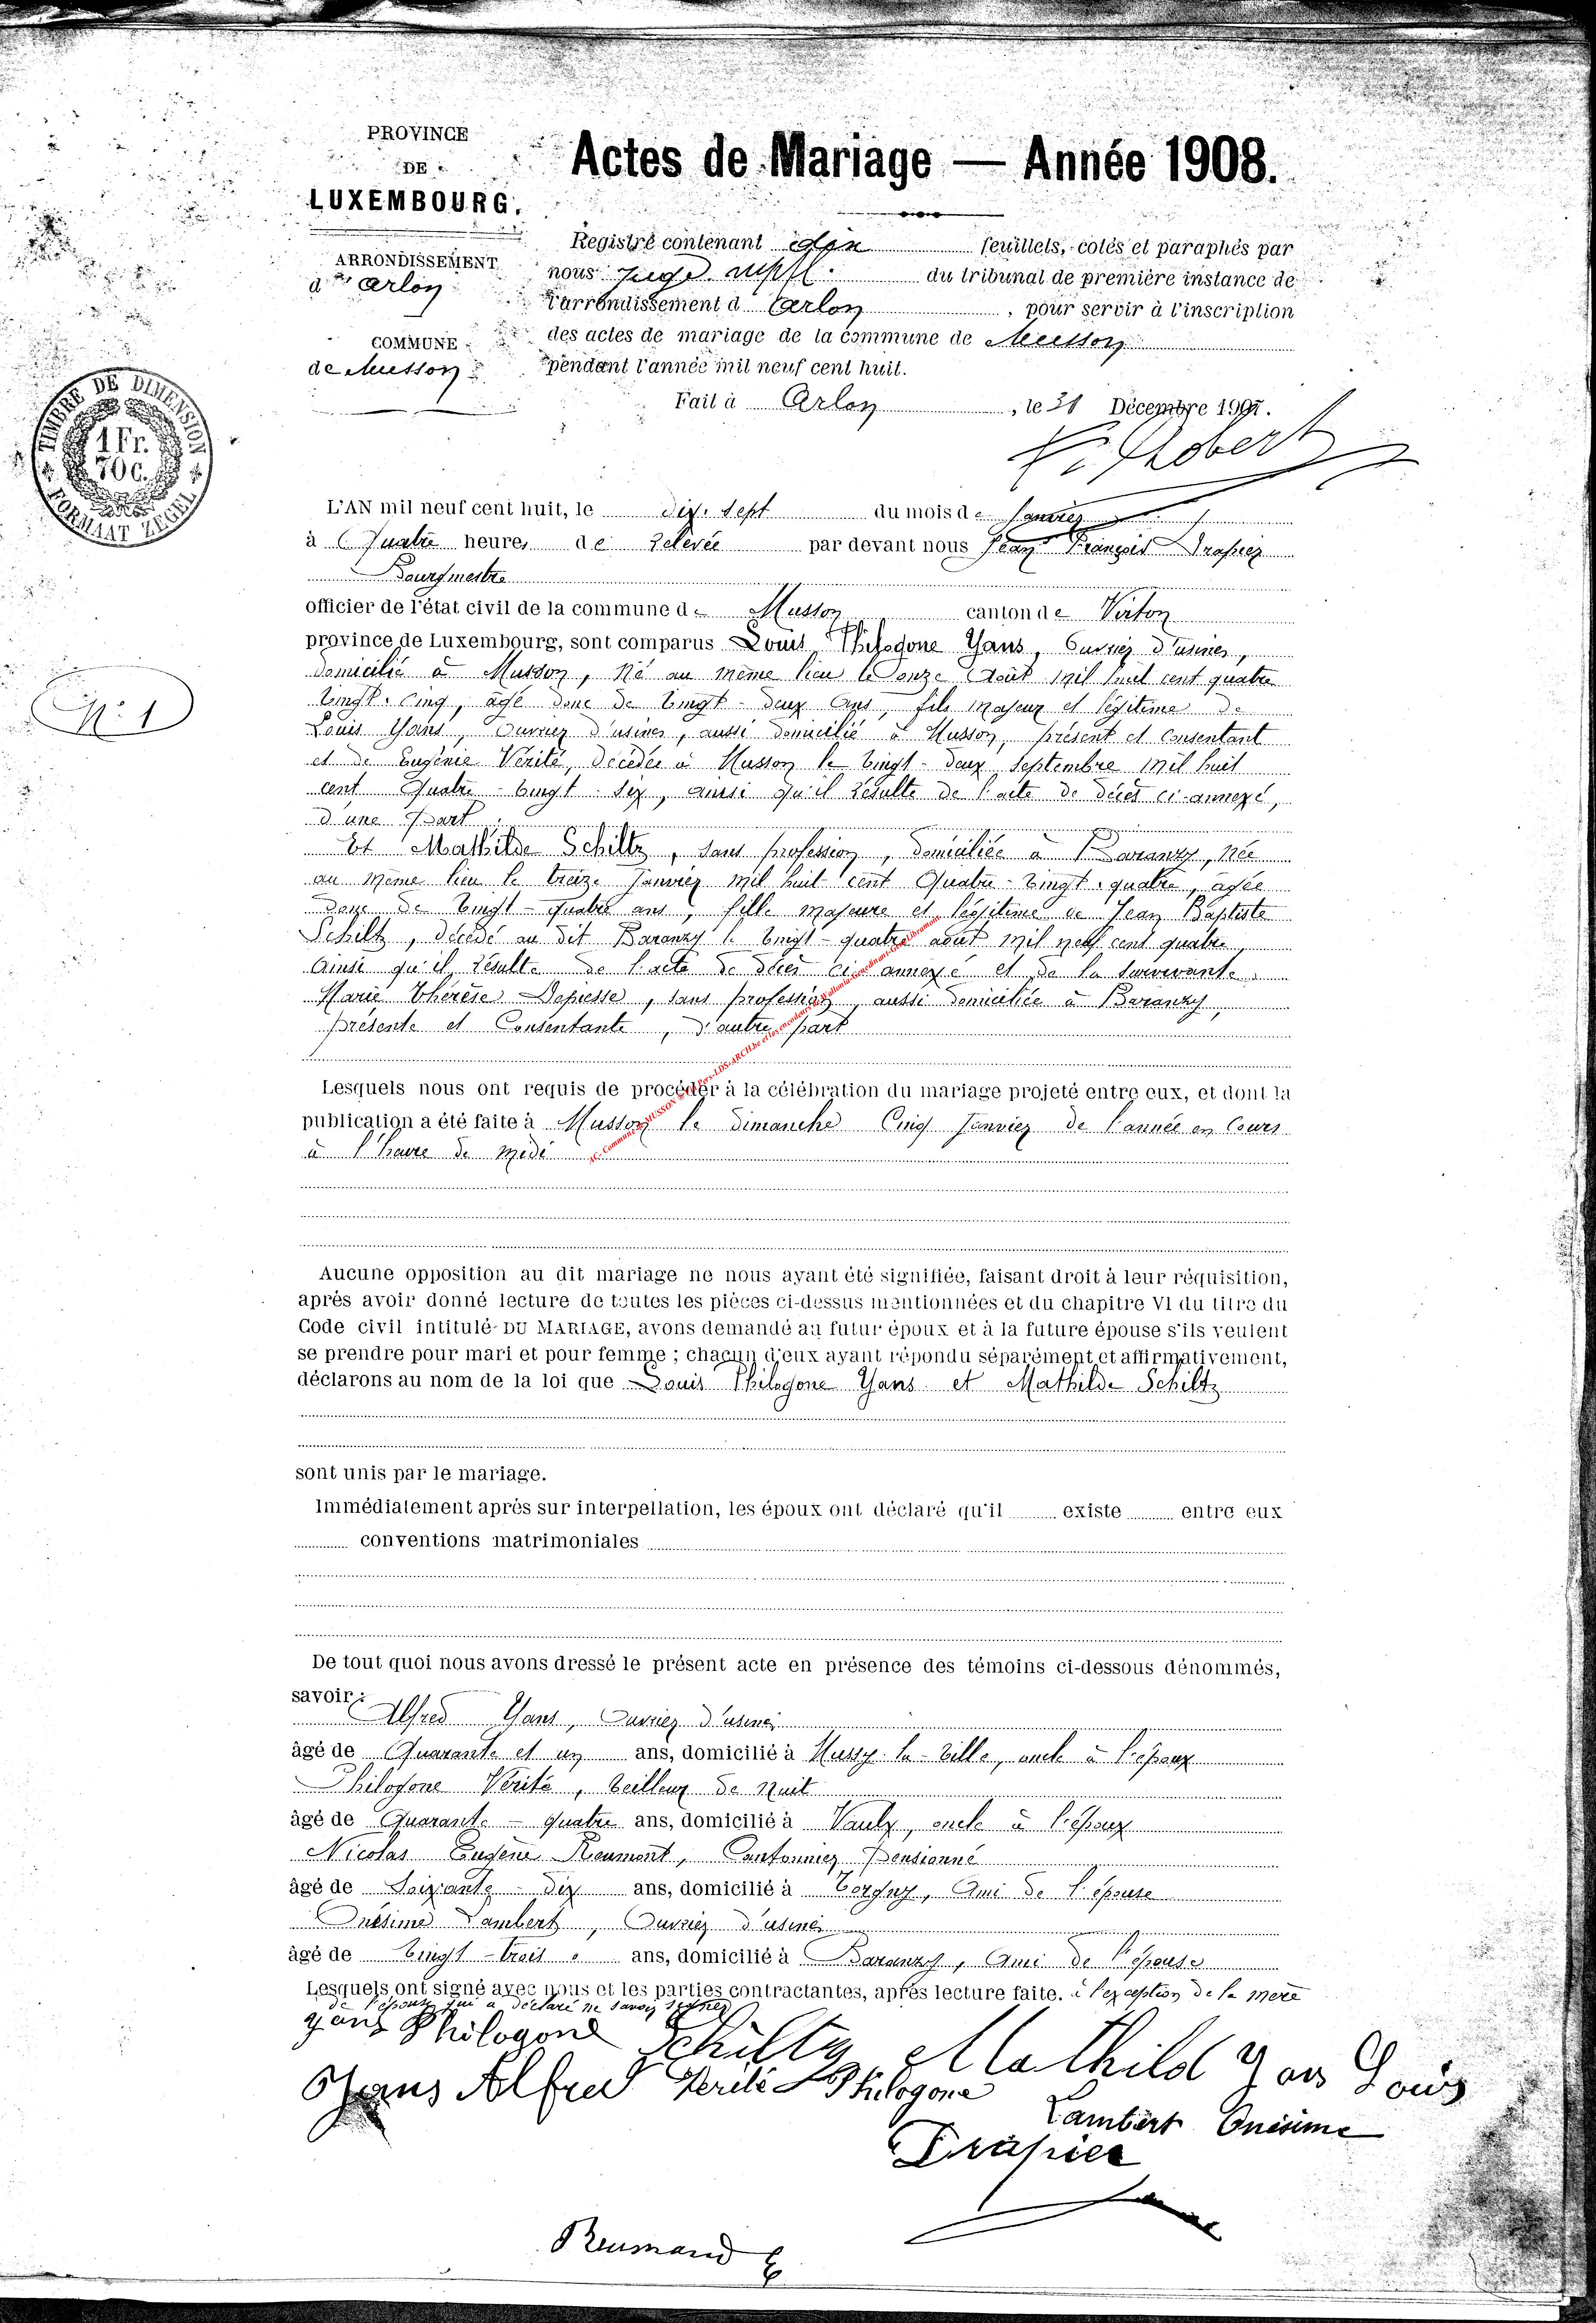 PROVINCE
DE
LUXEMBOURG.
ARRONDISSEMENT
d' Arlon
COMMUNE
de Musson
TIMBRE DE DIMENSION
1 Fr.
70 C.
FORMAAT ZEGEL
Actes de Mariage — Année 1908.
Registre contenant dix feuillets, cotés et paraphés par
nous juge suppl. du tribunal de première instance de
l'arrondissement d' Arlon, pour servir à l'inscription
des actes de mariage de la commune de Musson
pendant l'année mil neuf cent huit.
Fait à Arlon, le 31 Décembre 1907.
N° 1
L'AN mil neuf cent huit, le dix-sept du mois de Janvier
à Quatre heures de relevée par devant nous Jean François Drapier
Bourgmestre
officier de l'état civil de la commune de Musson canton de Virton
province de Luxembourg, sont comparus Louis Philogone Yans, Ouvrier d'usines,
domicilié à Musson, né au même lieu le onze Août mil huit cent quatre
vingt-cinq, âgé donc de vingt-deux ans, fils majeur et légitime de
Louis Yans, ouvrier d'usines, aussi domicilié à Musson, présent et consentant
et de Eugénie Vérité, décédée à Musson le vingt-deux Septembre mil huit
cent Quatre-vingt-six, ainsi qu'il résulte de l'acte de décès ci-annexé,
d'une part.
Et Mathilde Schiltz, sans profession, domiciliée à Baranzy, née
au même lieu le treize Janvier mil huit cent Quatre-vingt-quatre, âgée
donc de vingt-quatre ans, fille majeure et légitime de Jean Baptiste
Schiltz, décédé au dit Baranzy le vingt-quatre août mil neuf cent quatre
ainsi qu'il résulte de l'acte de décès ci-annexé et de la survivante
Marie Thérèse Depiesse, sans profession, aussi domiciliée à Baranzy,
présente et Consentante, d'autre part
Lesquels nous ont requis de procéder à la célébration du mariage projeté entre eux, et dont la
publication a été faite à Musson le dimanche Cinq Janvier de l'année en Cours
à l'heure de midi
Aucune opposition au dit mariage ne nous ayant été signifiée, faisant droit à leur réquisition,
après avoir donné lecture de toutes les pièces ci-dessus mentionnées et du chapitre VI du titre du
Code civil intitulé DU MARIAGE, avons demandé au futur époux et à la future épouse s'ils veulent
se prendre pour mari et pour femme ; chacun d'eux ayant répondu séparément et affirmativement,
déclarons au nom de la loi que Louis Philogone Yans et Mathilde Schiltz
sont unis par le mariage.
Immédiatement après sur interpellation, les époux ont déclaré qu'il existe entre eux
conventions matrimoniales
De tout quoi nous avons dressé le présent acte en présence des témoins ci-dessous dénommés,
savoir : Alfred Yans, Ouvrier d'usines
âgé de Quarante et un ans, domicilié à Mussy-la-Ville, oncle à l'époux
Philogone Vérité, Veilleur de nuit
âgé de Quarante-quatre ans, domicilié à Vaulx, oncle à l'époux
Nicolas Eugène Reumont, Cantonnier pensionné
âgé de Soixante-dix ans, domicilié à Torgny, Ami de l'épouse
Onésime Lambert, Ouvrier d'usines
âgé de Vingt-trois ans, domicilié à Baranzy, Ami de l'épouse
Lesquels ont signé avec nous et les parties contractantes, après lecture faite. à l'exception de la mère
de l'épouse qui a déclaré ne savoir signer
Yans Philogone Schiltz Mathild Yans Louis
Yans Alfred Vérité Philogone
Lambert Onésime
Drapier
Reumand E